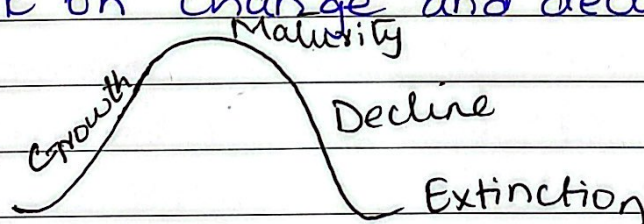 on change and
Maturity
Growth
Decline
Extinction